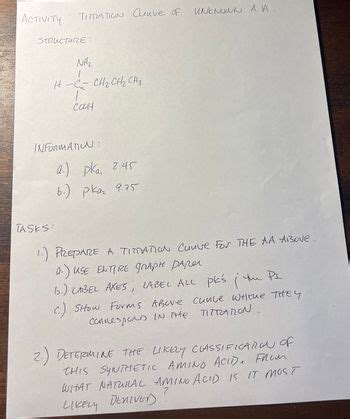 ACTIVITY: TITRATION CURVE OF UNKNOWN AA
STRUCTURE:
NH2
H-C-CH2CH2CH3
COOH
INFORMATION:
a.) pka1 2.45
b.) pka2 9.75
TASKS:
1.) PREPARE A TITRATION CURVE FOR THE AA ABOVE.
a.) USE ENTIRE GRAPH PAPER
b.) LABEL AXES, LABEL ALL pK's ; the PI
c.) SHOW FORMS ABOVE CURVE WHERE THEY
CORRESPOND IN THE TITRATION.
2.) DETERMINE THE LIKELY CLASSIFICATION OF
THIS SYNTHETIC AMINO ACID. FROM
WHAT NATURAL AMINO ACID IS IT MOST
LIKELY DERIVED?